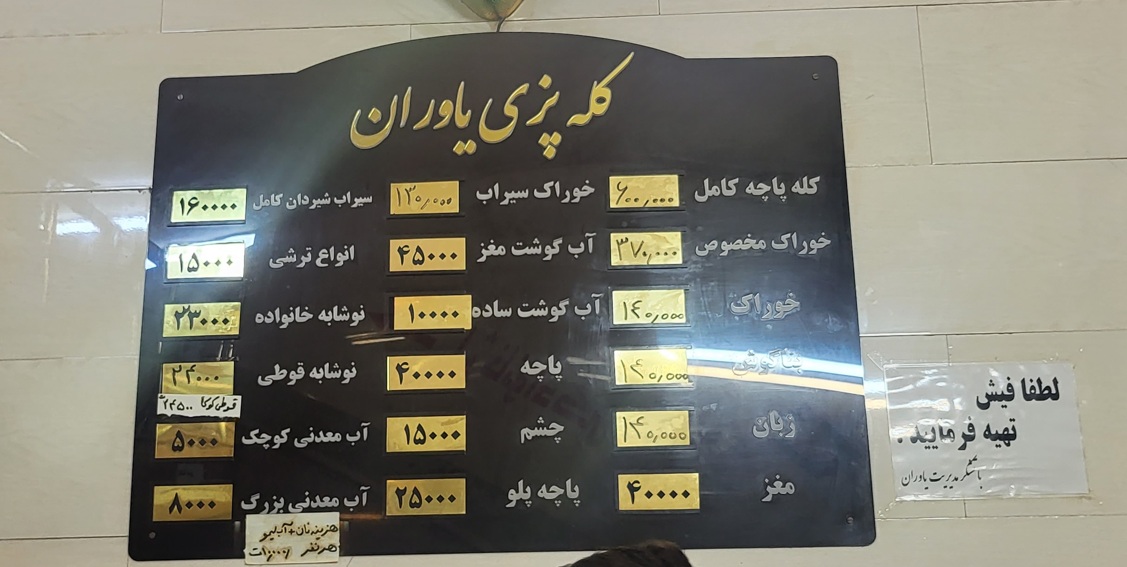 کله پزی یاوران
کله پاچه کامل ۶۰۰,۰۰۰
خوراک مخصوص ۳۷۰,۰۰۰
خوراک ۱۴۰,۰۰۰
بناگوش ۱۴۰,۰۰۰
زبان ۱۴۰,۰۰۰
مغز ۴۰۰۰۰
خوراک سیراب ۱۳۰,۰۰۰
آب گوشت مغز ۴۵۰۰۰
آب گوشت ساده ۱۰۰۰۰
پاچه ۴۰۰۰۰
چشم ۱۵۰۰۰
پاچه پلو ۲۵۰۰۰
سیراب شیردان کامل ۱۶۰۰۰۰
انواع ترشی ۱۵۰۰۰
نوشابه خانواده ۲۳۰۰۰
نوشابه قوطی ۲۴۰۰۰
قوطی کوکا ۲۴۵۰۰
آب معدنی کوچک ۵۰۰۰
آب معدنی بزرگ ۸۰۰۰
هزینه نان+آبلیمو
هر نفر
لطفا فیش
تهیه فرمایید.
با تشکر مدیریت یاوران